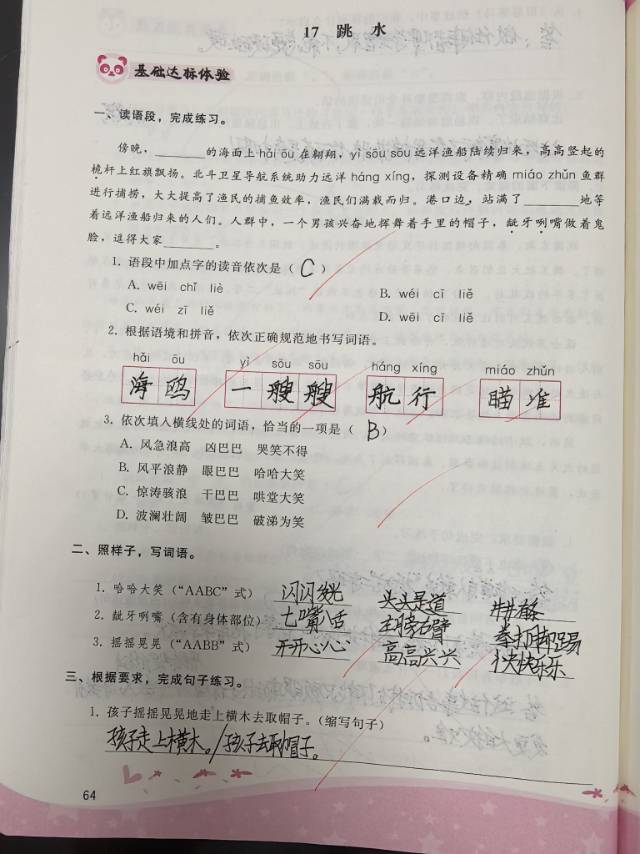 17 跳 水
基础达标体验
一、读语段，完成练习。
傍晚，________的海面上hǎi ōu在翱翔，yì sōu sōu远洋渔船陆续归来，高高竖起的
桅杆上红旗飘扬。北斗卫星导航系统助力远洋háng xíng，探测设备精确miáo zhǔn鱼群
进行捕捞，大大提高了渔民的捕鱼效率，渔民们满载而归。港口边，站满了________地等
着远洋渔船归来的人们。人群中，一个男孩兴奋地挥舞着手里的帽子，龇牙咧嘴做着鬼
脸，逗得大家________。
1. 语段中加点字的读音依次是（ C ）
A. wēi chǐ liè B. wéi cī liě
C. wéi zī liě D. wēi cī liě
2. 根据语境和拼音，依次正确规范地书写词语。
hǎi ōu yì sōu sōu háng xíng miáo zhǔn
海鸥 一艘艘 航行 瞄准
3. 依次填入横线处的词语，恰当的一项是（ B ）
A. 风急浪高 凶巴巴 哭笑不得
B. 风平浪静 眼巴巴 哈哈大笑
C. 惊涛骇浪 干巴巴 哄堂大笑
D. 波澜壮阔 皱巴巴 破涕为笑
二、照样子，写词语。
1. 哈哈大笑（“AABC”式） 闪闪发光 头头是道 井井有条
2. 龇牙咧嘴（含有身体部位） 七嘴八舌 左膀右臂 拳打脚踢
3. 摇摇晃晃（“AABB”式） 开开心心 高高兴兴 快快乐乐
三、根据要求，完成句子练习。
1. 孩子摇摇晃晃地走上横木去取帽子。（缩写句子）
孩子走上横木。/孩子去取帽子。
64